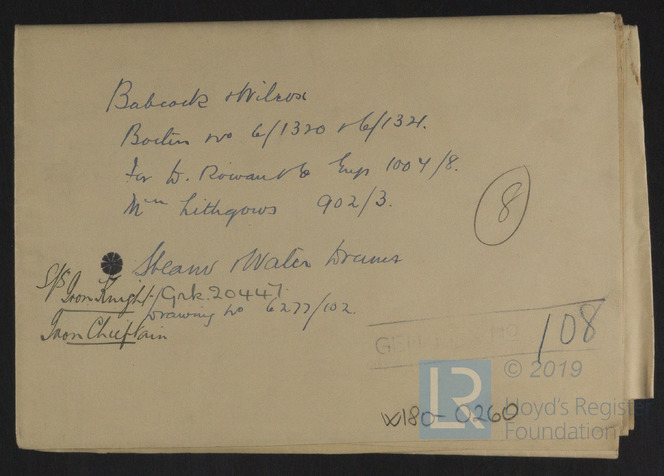 Babcock & Wilcox
Boilers No 6/1320 & 6/1321.
For D. Rowan & Co Engs 1004/8.
Mrss Lithgows 902/3.
8
Steam & Water Drums
S/S Iron Knight /Grk. 20447.
Drawing No 6277/102.
Iron Chieftain
108
© 2019
LR
Lloyd's Register
Foundation
W180-0260